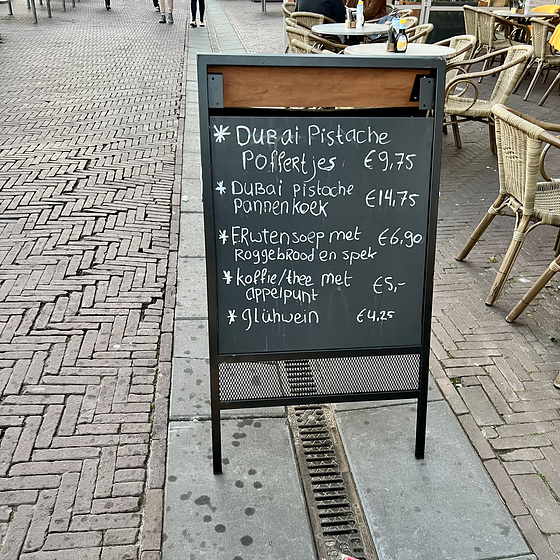 * Dubai Pistache
Poffertjes €9,75
* Dubai pistache
pannenkoek €14,75
* Erwtensoep met €6,90
Roggebrood en spek
* koffie/thee met
appelpunt €5,-
* glühwein €4,25